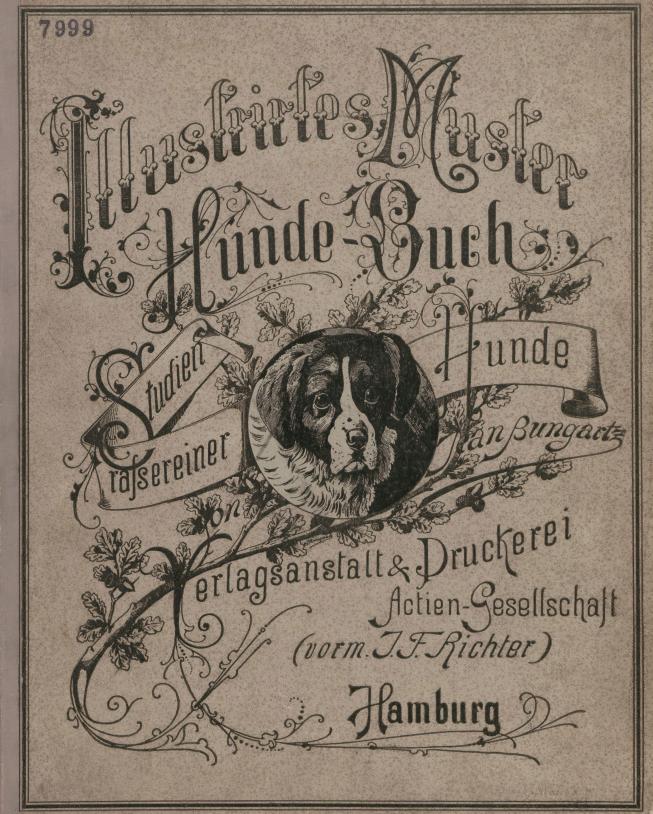 7999
Illustrirtes Muster
Hunde-Buch
Studien
rassereiner
Hunde
von Jean Bungartz
Verlagsanstalt & Druckerei
Actien-Gesellschaft
(vorm. J. F. Richter)
Hamburg